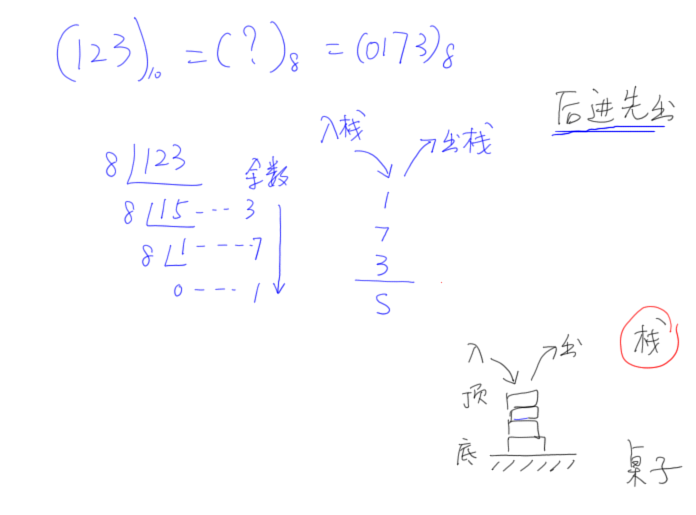 (123)₁₀ = (?)₈ = (0173)₈
后进先出
入栈
出栈
8 123 余数
8 15 --- 3
8 1 ---- 7
0 --- 1
1
7
3
S
栈
入 出
顶
底
桌子